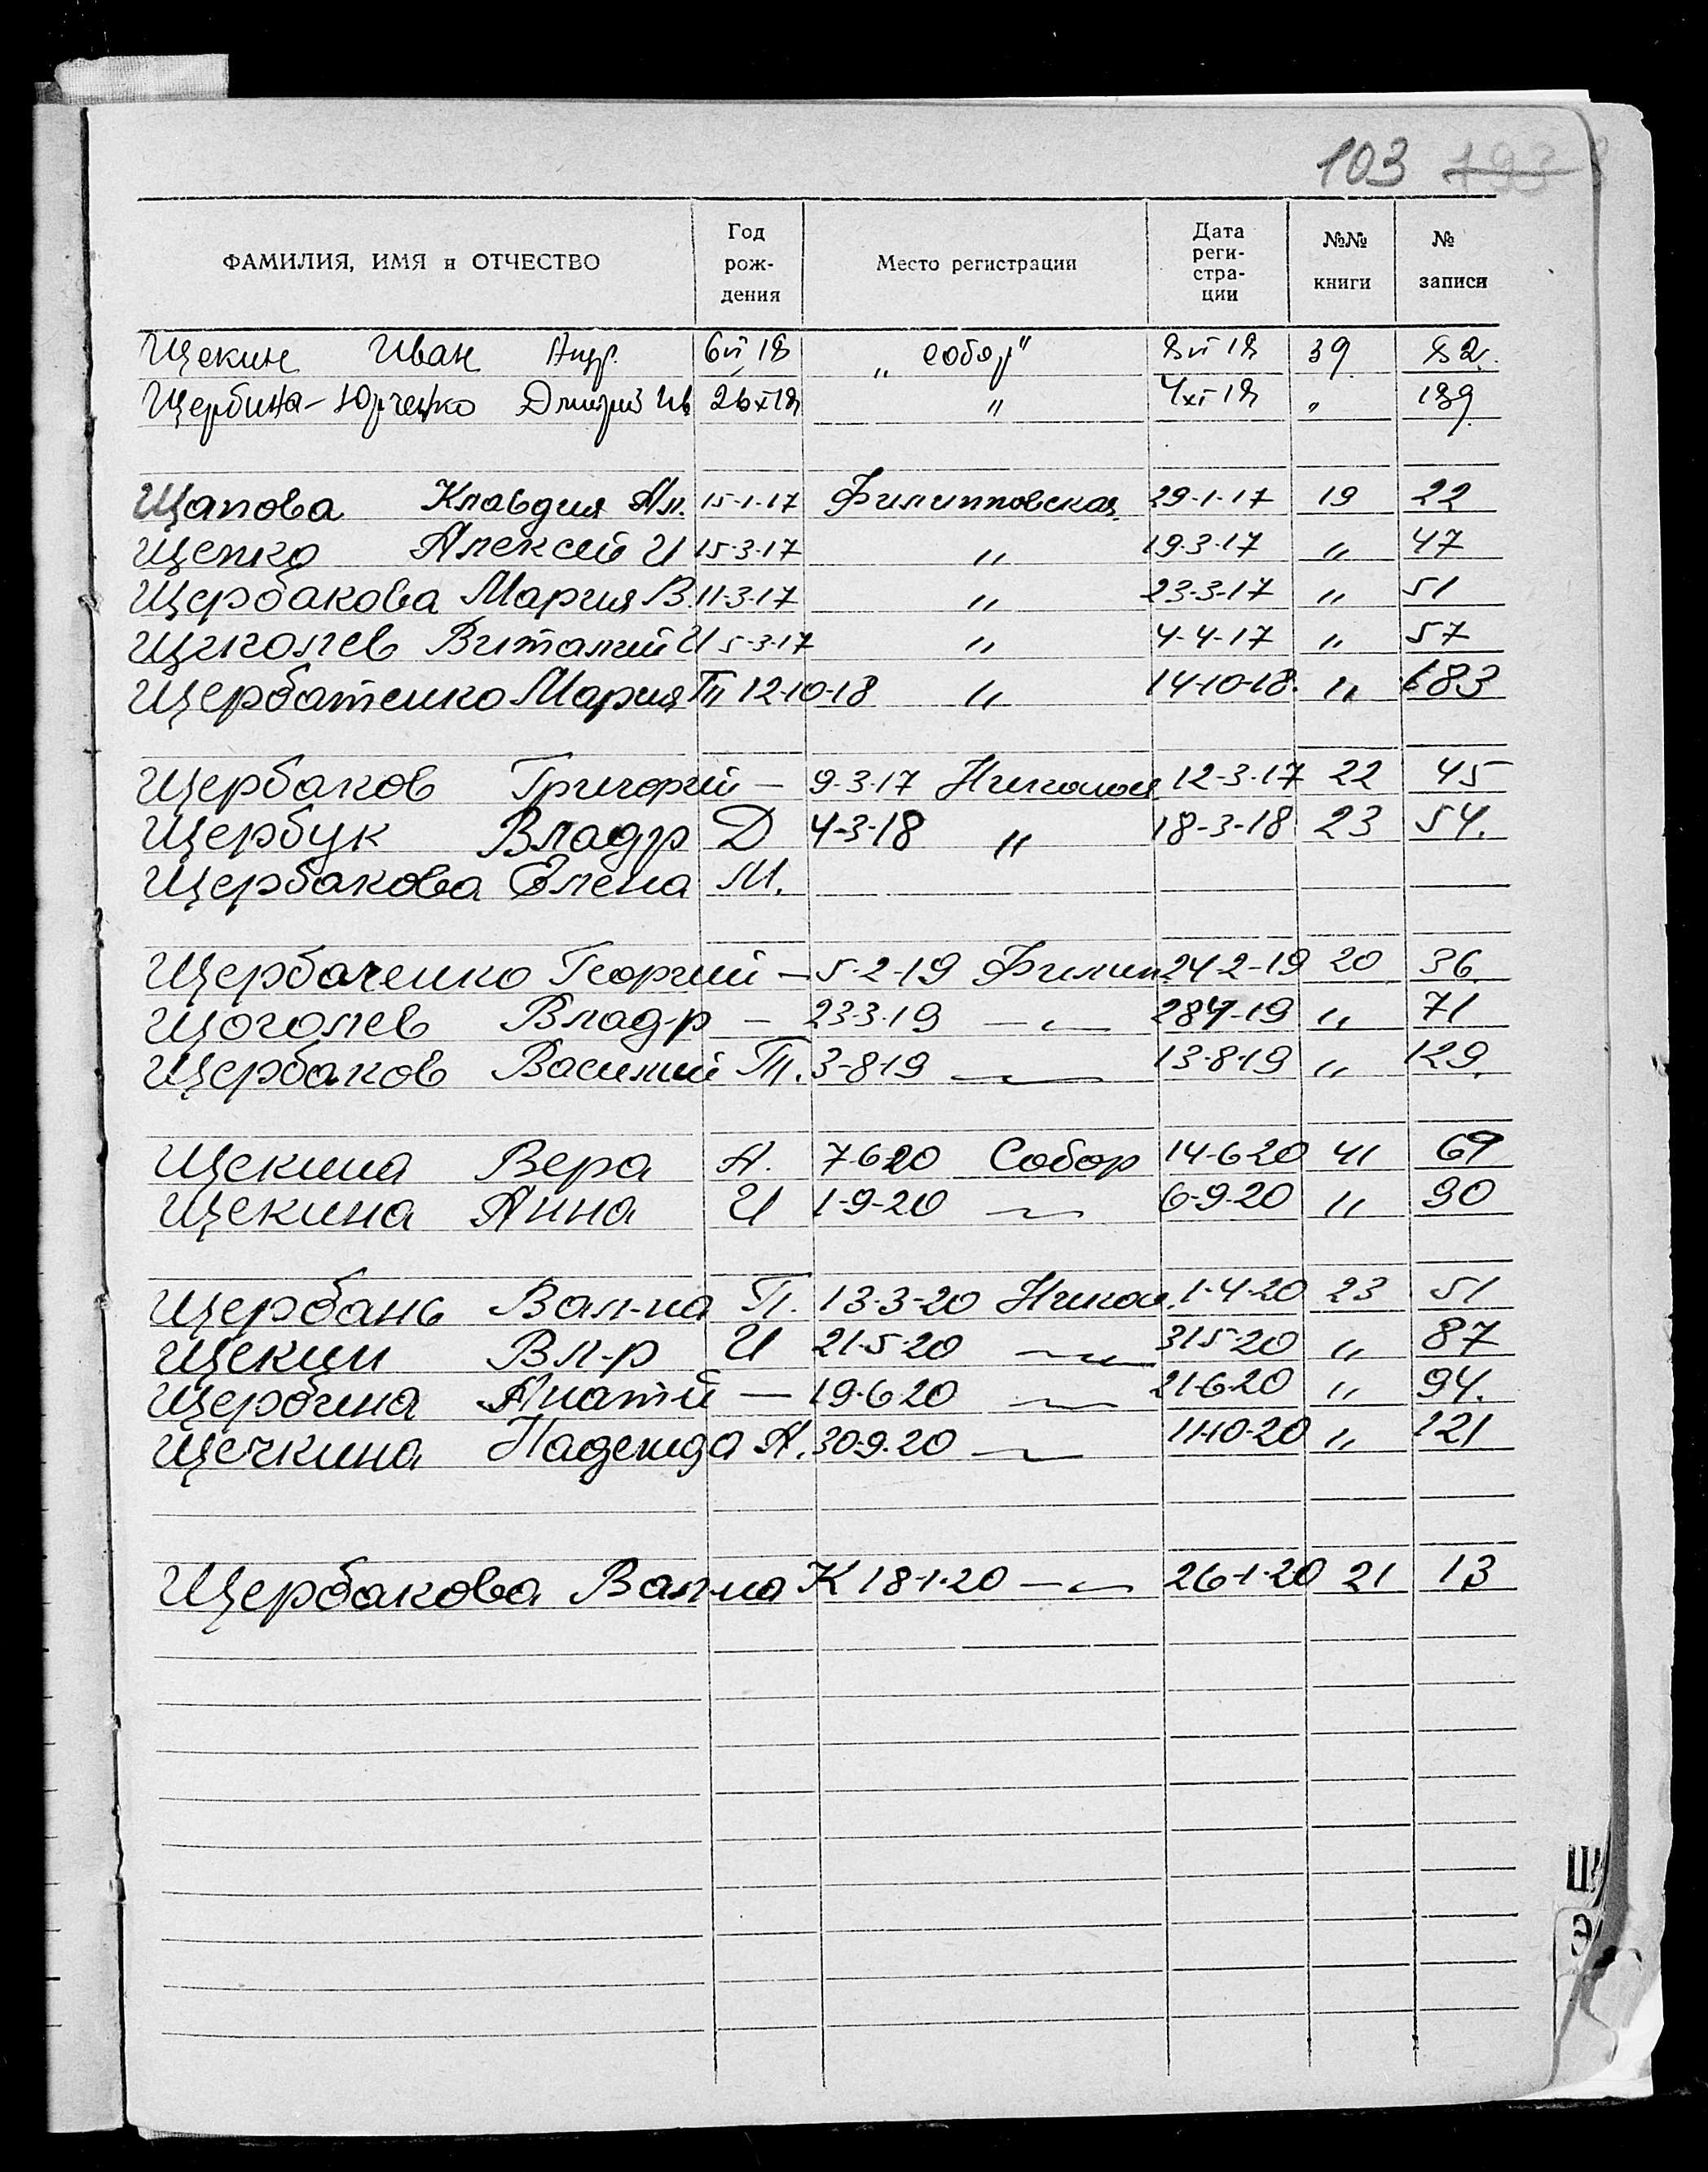 103 193
ФАМИЛИЯ, ИМЯ и ОТЧЕСТВО Год рож- дения Место регистрации Дата реги- стра- ции №№ книги № записи
Щекин Иван Андр. 6 VI 18 „ собор" 8 VI 18 39 82.
Щербина-Юрченко Дмитрий Ив 26 XI 18 " " 189
Щапова Клавдия Ал. 15-1-17 Филипповская 29-1-17 19 22
Щепко Алексей И 15-3-17 " 19-3-17 " 47
Щербакова Мария В. 11-3-17 " 23-3-17 " 51
Щиголев Виталий И 5-3-17 " 4-4-17 " 57
Щербатенко Мария П 12-10-18 " 14-10-18. " 683
Щербаков Григорий — 9-3-17 Николая 12-3-17 22 45
Щербук Владр Д 4-3-18 " 18-3-18 23 54.
Щербакова Елена М.
Щербаченко Георгий — 5-2-19 Филип. 24-2-19 20 36
Щоголев Влад-р — 23-3-19 —"— 28-4-19 " 71
Щербаков Василий П. 3-8-19 —"— 13-8-19 " 129.
Щекина Вера А. 7-6-20 Собор 14-6-20 41 69
Щекина Анна И 1-9-20 —"— 6-9-20 " 90
Щербань Вал-на П. 13-3-20 Никол. 1-4-20 23 51
Щекин Вл-р И 21-5-20 —"— 31-5-20 " 87
Щербина Анатй — 19-6-20 —"— 21-6-20 " 94.
Щечкина Надежда А. 30-9-20 —"— 11-10-20 " 121
Щербакова Вал-на К 18-1-20 —"— 26-1-20 21 13
Щ
Э